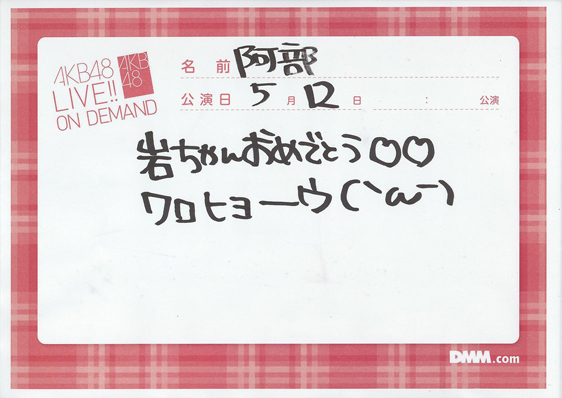 AKB48
LIVE!!
ON DEMAND
AKB
48
名 前 阿部
公演日 5 月 12 日 : 公演
岩ちゃんおめでとう♡♡
クロヒョーウ(`ω´)
DMM.com